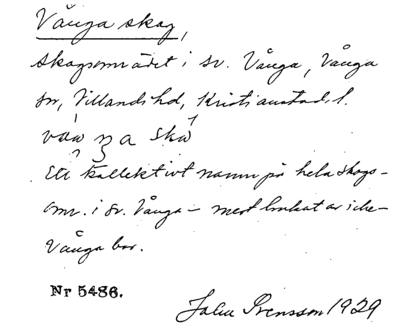 Vånga skog,
Skogsområdet i sv. Vånga, Vånga
sn, Villands hd, Kristianstads l.
Ett kollektivt namn på hela skogs-
omr. i sv. Vånga – mest brukat av icke-
Vånga bor.
Nr 5486.
Svensson 1929